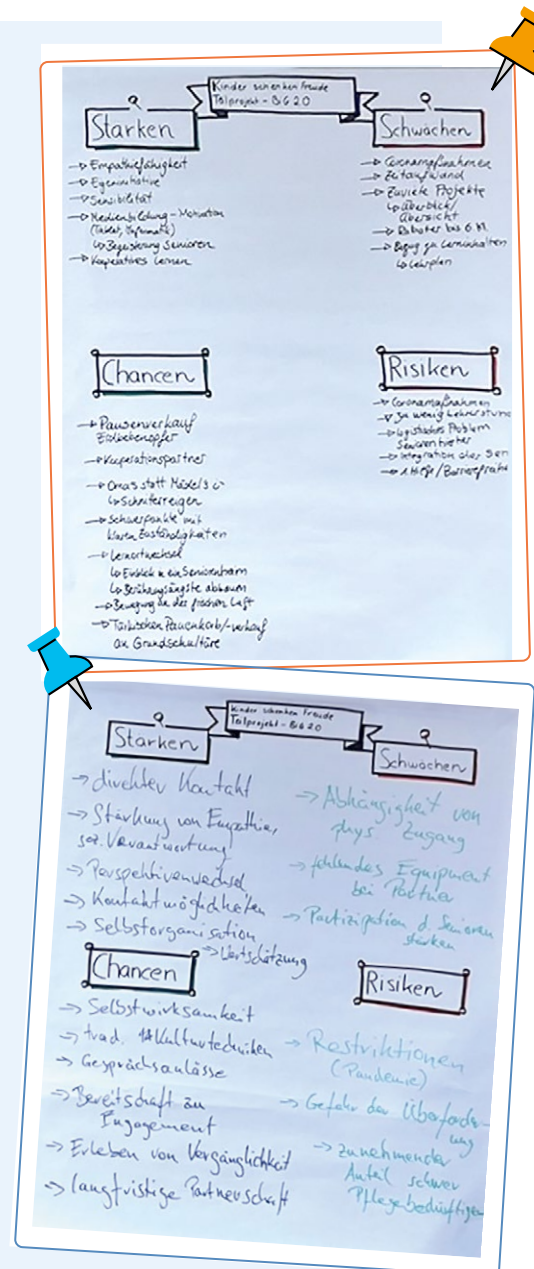 Kinder schenken Freude
Teilprojekt - BiG 20
Stärken
→ Empathiefähigkeit
→ Eigeninitiative
→ Sensibilität
→ Medienbildung - Motivation
(Tablet, Informatik)
↳ Begeisterung Senioren
→ Kooperatives Lernen
Schwächen
→ Coronamaßnahmen
→ Zeitaufwand
→ Zuviele Projekte
↳ Überblick/
Übersicht
→ Roboter bis 6 M.
→ Bezug zu Lerninhalten
↳ Lehrplan
Chancen
→ Pausenverkauf
Erdbebenopfer
→ Kooperationspartner
→ Omas statt Mädels
→ Schwerpunkte mit
klaren Zuständigkeiten
→ Lernortwechsel
↳ Einblick in ein Seniorenheim
↳ Berührungsängste abbauen
→ Bewegung an der frischen Luft
→ Türkischen Pausenkorb/-verkauf
an Grundschultüre
Risiken
→ Coronamaßnahmen
→ Zu wenig Lehrerstund
→ Logistisches Problem
→ Integration der Sen
Kinder schenken Freude
Teilprojekt - BiG 20
Stärken
→ direkter Kontakt
→ Stärkung von Empathie,
soz. Verantwortung
→ Perspektivenwechsel
→ Kontaktmöglichkeiten
→ Selbstorganisation
→ Wertschätzung
Schwächen
→ Abhängigkeit von
phys. Zugang
→ fehlendes Equipment
bei Partner
→ Partizipation d. Senioren
stärken
Chancen
→ Selbstwirksamkeit
→ trad. Kulturtechniken
→ Gesprächsanlässe
→ Bereitschaft zu
Engagement
→ Erleben von Vergänglichkeit
→ langfristige Partnerschaft
Risiken
→ Restriktionen
(Pandemie)
→ Gefahr der Überforder-
ung
→ zunehmender
Anteil schwer
Pflegebedürftiger